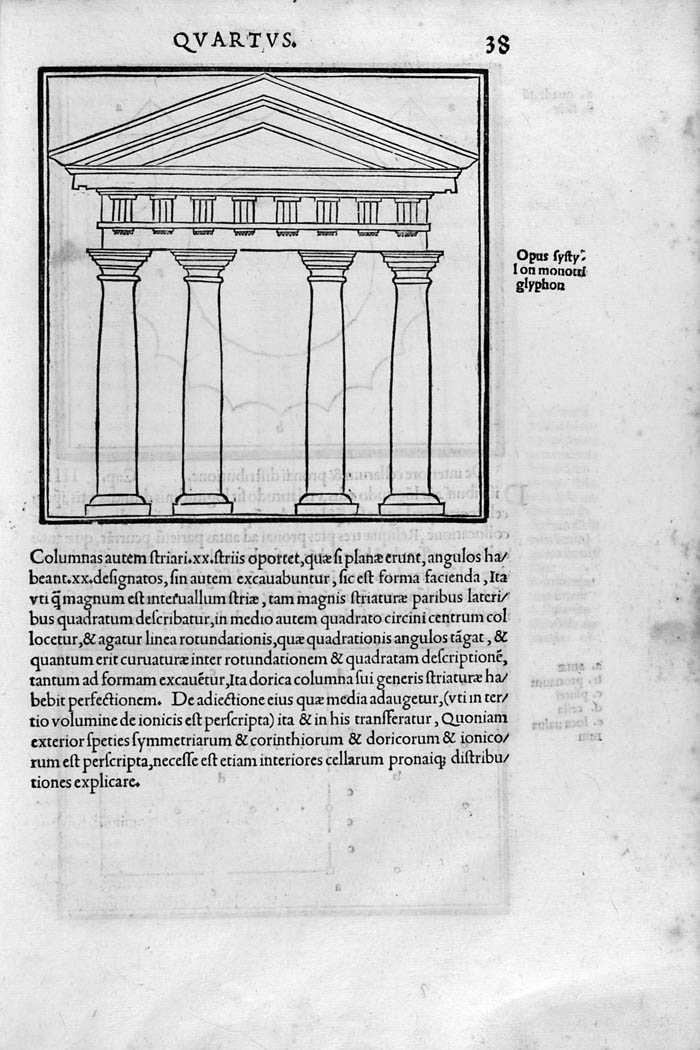 QVARTVS.
38
Opus systy⸗
lon monotri
glyphon
Columnas autem striari.xx.striis oportet,quæ si planæ erunt, angulos ha/
beant.xx.designatos, sin autem excauabuntur, sic est forma facienda, Ita
vti q̃ magnum est interuallum striæ, tam magnis striaturæ paribus lateri/
bus quadratum describatur,in medio autem quadrato circini centrum col
locetur,& agatur linea rotundationis,quæ quadrationis angulos tãgat, &
quantum erit curuaturæ inter rotundationem & quadratam descriptionẽ,
tantum ad formam excauẽtur,Ita dorica columna sui generis striaturæ ha/
bebit perfectionem. De adiectione eius quæ media adaugetur,(vti in ter/
tio volumine de ionicis est perscripta) ita & in his transferatur, Quoniam
exterior speties symmetriarum & corinthiorum & doricorum & ionico/
rum est perscripta,necesse est etiam interiores cellarum pronaiq; distribu/
tiones explicare.